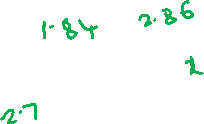 1.84 2.86
1
2.7